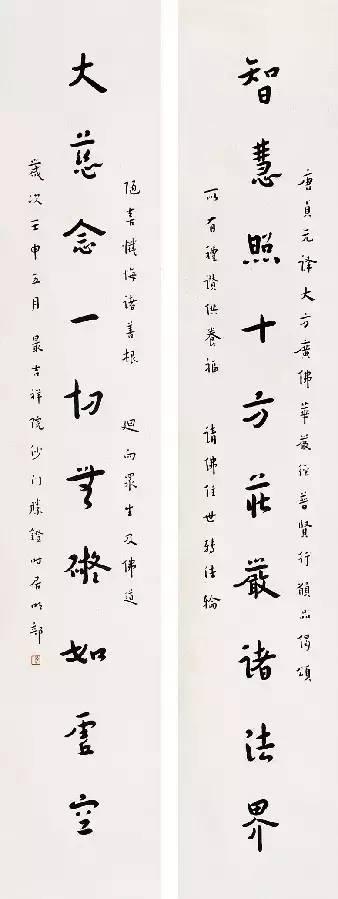 唐貞元譯大方廣佛華嚴經普賢行願品偈頌
智慧照十方莊嚴諸法界
所有禮讚供養福 請佛住世轉法輪
隨喜懺悔諸善根 迴向眾生及佛道
大慈念一切無礙如虛空
歲次壬申五月 最吉祥院沙门勝鐙时居明